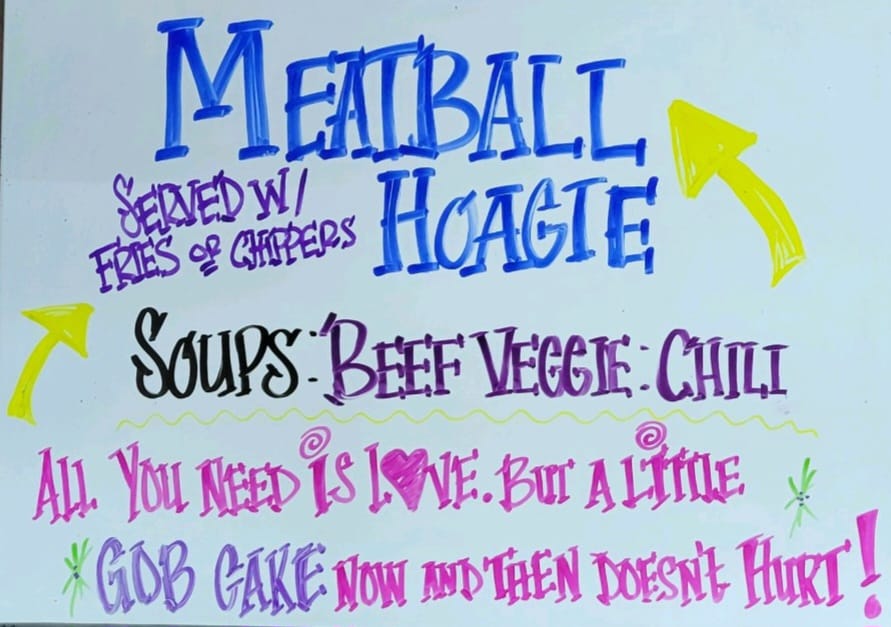 MEATBALL
HOAGIE
SERVED W/
FRIES OR CHIPPERS
SOUPS: BEEF VEGGIE: CHILI
ALL YOU NEED IS L♥VE. BUT A LITTLE
GOB CAKE NOW AND THEN DOESN'T HURT!